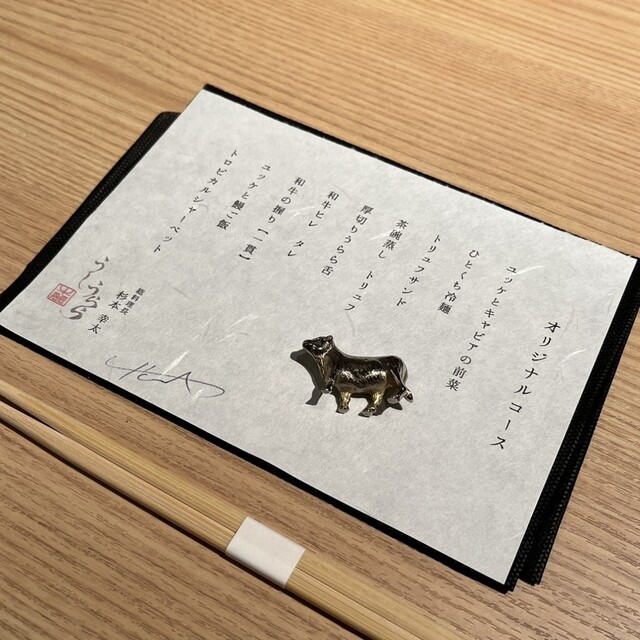 オリジナルコース
ユッケとキャビアの前菜
ひとくち冷麺
トリュフサンド
茶碗蒸し　トリュフ
厚切りうらら舌
和牛ヒレ　タレ
和牛の握り【一貫】
ユッケと鯛ご飯
トロピカルシャーベット
総料理長
杉本 幸太
うしうらら